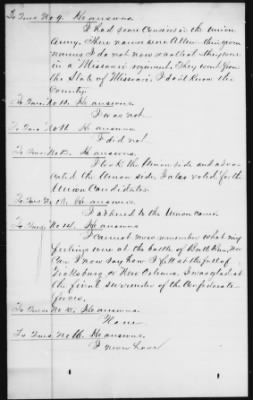 To Ques. No 9. He answers
I had some Cousins in the Union
Army. Their names were Allen their given
names I do not now recollect. They were
in a Missouri regiment. They went from
the State of Missouri. I don't know the
County.
To Ques. No 10. He answers
I was not
To Ques. No 11. He answers
I did not.
To Ques. No 12. He answers
I took the Union side and advo-
cated the Union side. I also voted for the
Union Candidates.
To Ques. No 13. He answers
I adhered to the Union cause
To Ques. No 14. He answers
I cannot now remember what my
feelings were at the battle of Bull Run, nor
can I now say how I felt at the fall of
Vicksburg or New Orleans. I was glad at
the final surrender of the Confederate
forces.
To Ques. No 15. He answers
None.
To Ques. No 16. He answers
I never have